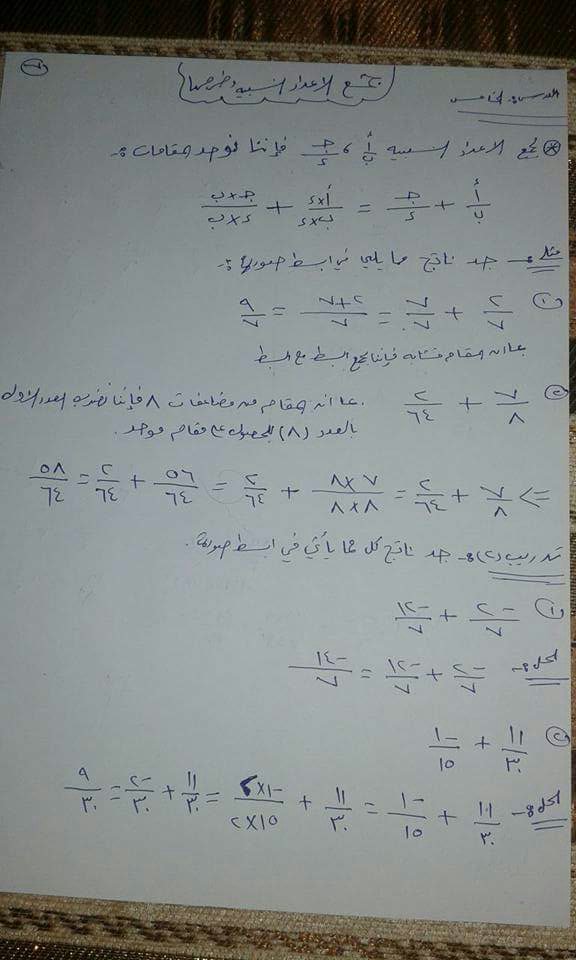 الدرس الخامس
جمع الاعداد النسبيه وطرحها
لجمع الاعداد النسبيه أ/ب ، جـ/د فإننا نوحد المقامات :-
أ/ب + جـ/د = أ×د/ب×د + جـ×ب/د×ب
مثال :- جد ناتج مما يلي في ابسط صورة :-
١) ٢/٧ + ٧/٧ = ٢+٧/٧ = ٩/٧
بما ان المقام متشابه فإننا نجمع البسط مع البسط
٢) ٧/٨ + ٢/٦٤ بما ان المقام من مضاعفات ٨ فإننا نضرب العدد الاول
بالعدد (٨) للحصول على مقام موحد .
=> ٧/٨ + ٢/٦٤ = ٧×٨/٨×٨ + ٢/٦٤ = ٥٦/٦٤ + ٢/٦٤ = ٥٨/٦٤
تدريب (٢) :- جد ناتج كل مما يأتي في ابسط صورة .
١) -٢/٧ + -١٢/٧
الحل :- -٢/٧ + -١٢/٧ = -١٤/٧
٢) ١١/٣٠ + -١/١٥
الحل :- ١١/٣٠ + -١/١٥ = ١١/٣٠ + -١×٢/١٥×٢ = ١١/٣٠ + -٢/٣٠ = ٩/٣٠